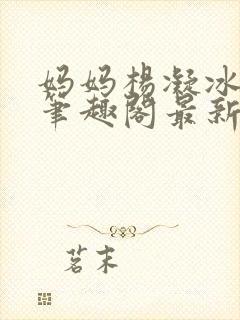 妈妈杨凝冰
笔趣阁最新
茗末